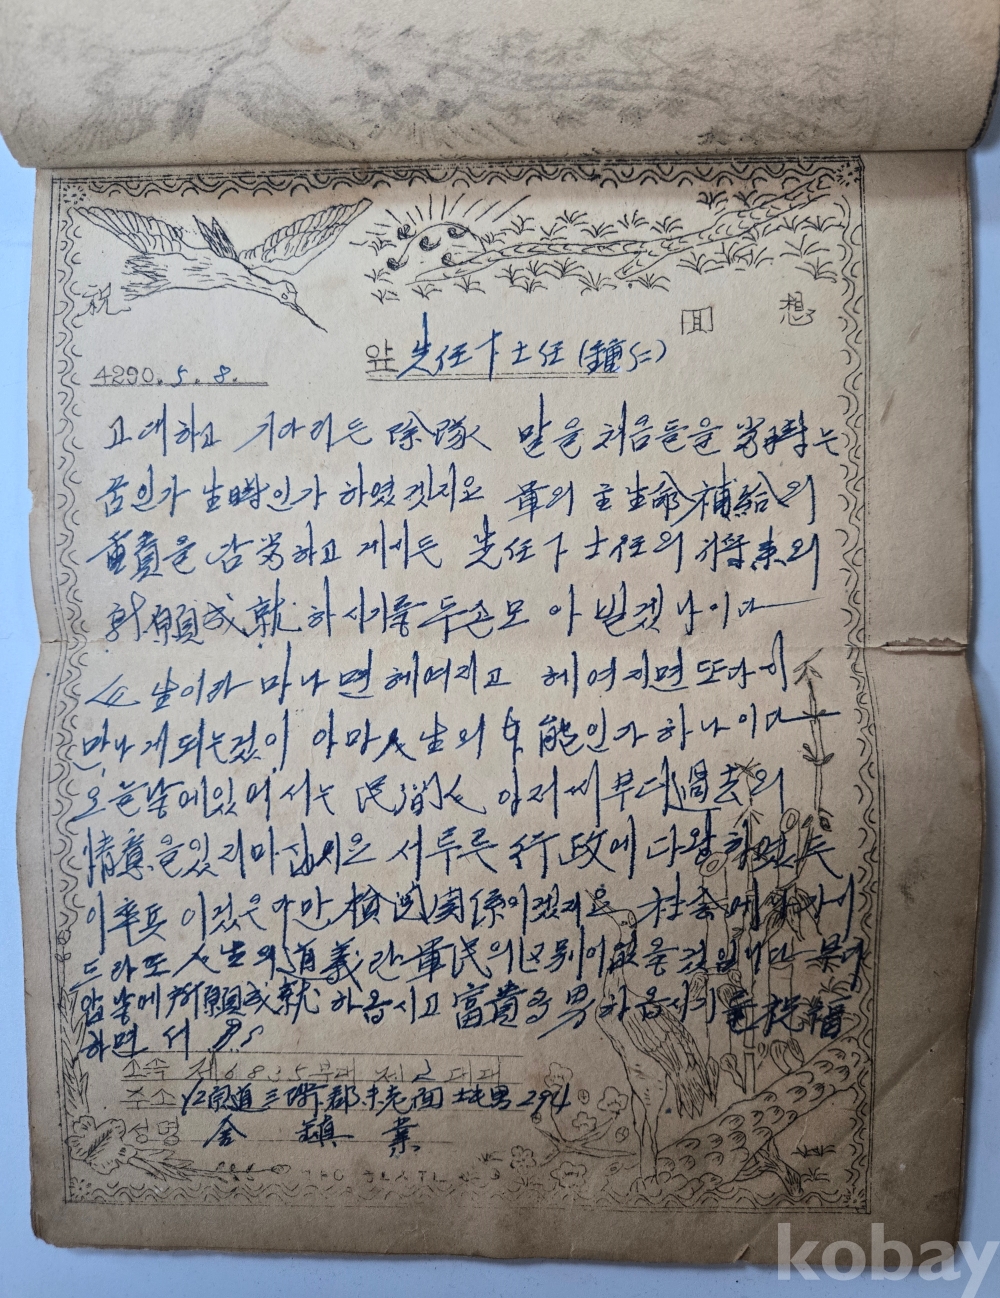 祝
回 想
4290. 5. 8.
앞 先任下士任 (鍾仁)
고대하고 기다리든 除隊 말을 처음들을 當時는
꿈인가 生時인가 하였겟지요 軍의 主生命 補給의
重責을 감當하고 게시든 先任下士任의 將來의
所願成就 하시기를 두손모아 빌겟나이다
人生이라 마나면 헤여지고 헤여지면 또다시
만나게되는것이 아마 人生의 本能인가 하나이다
오늘날에있어서는 民間人
情意을있지마십시요 서투른 行政에 다왕하였든
이 卒兵 이것은 關係이겠지요 社會에
드라도 人生의 道義란 軍民의 区別이 없을것입니다
앞날에 所願成就 하옵시고 富貴多男 하옵시기를 祝福
하면서
소속 제6835부대 제2대대
주소 江原道 三陟郡 未老面 294
성명 金 鎭 業
kobay